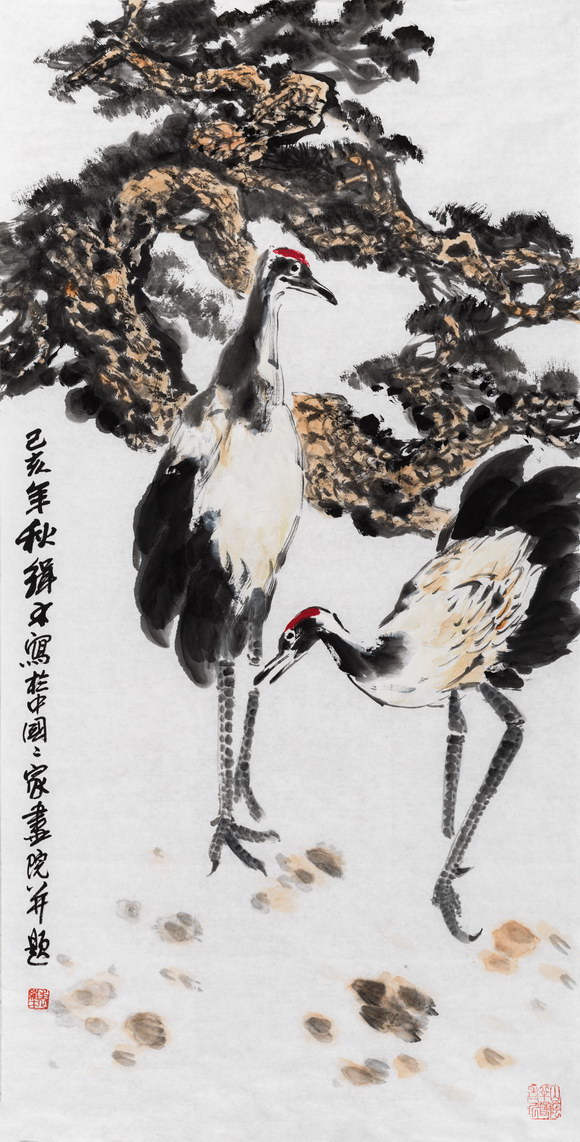 己亥年秋缉才寫於中國〻家畫院并題